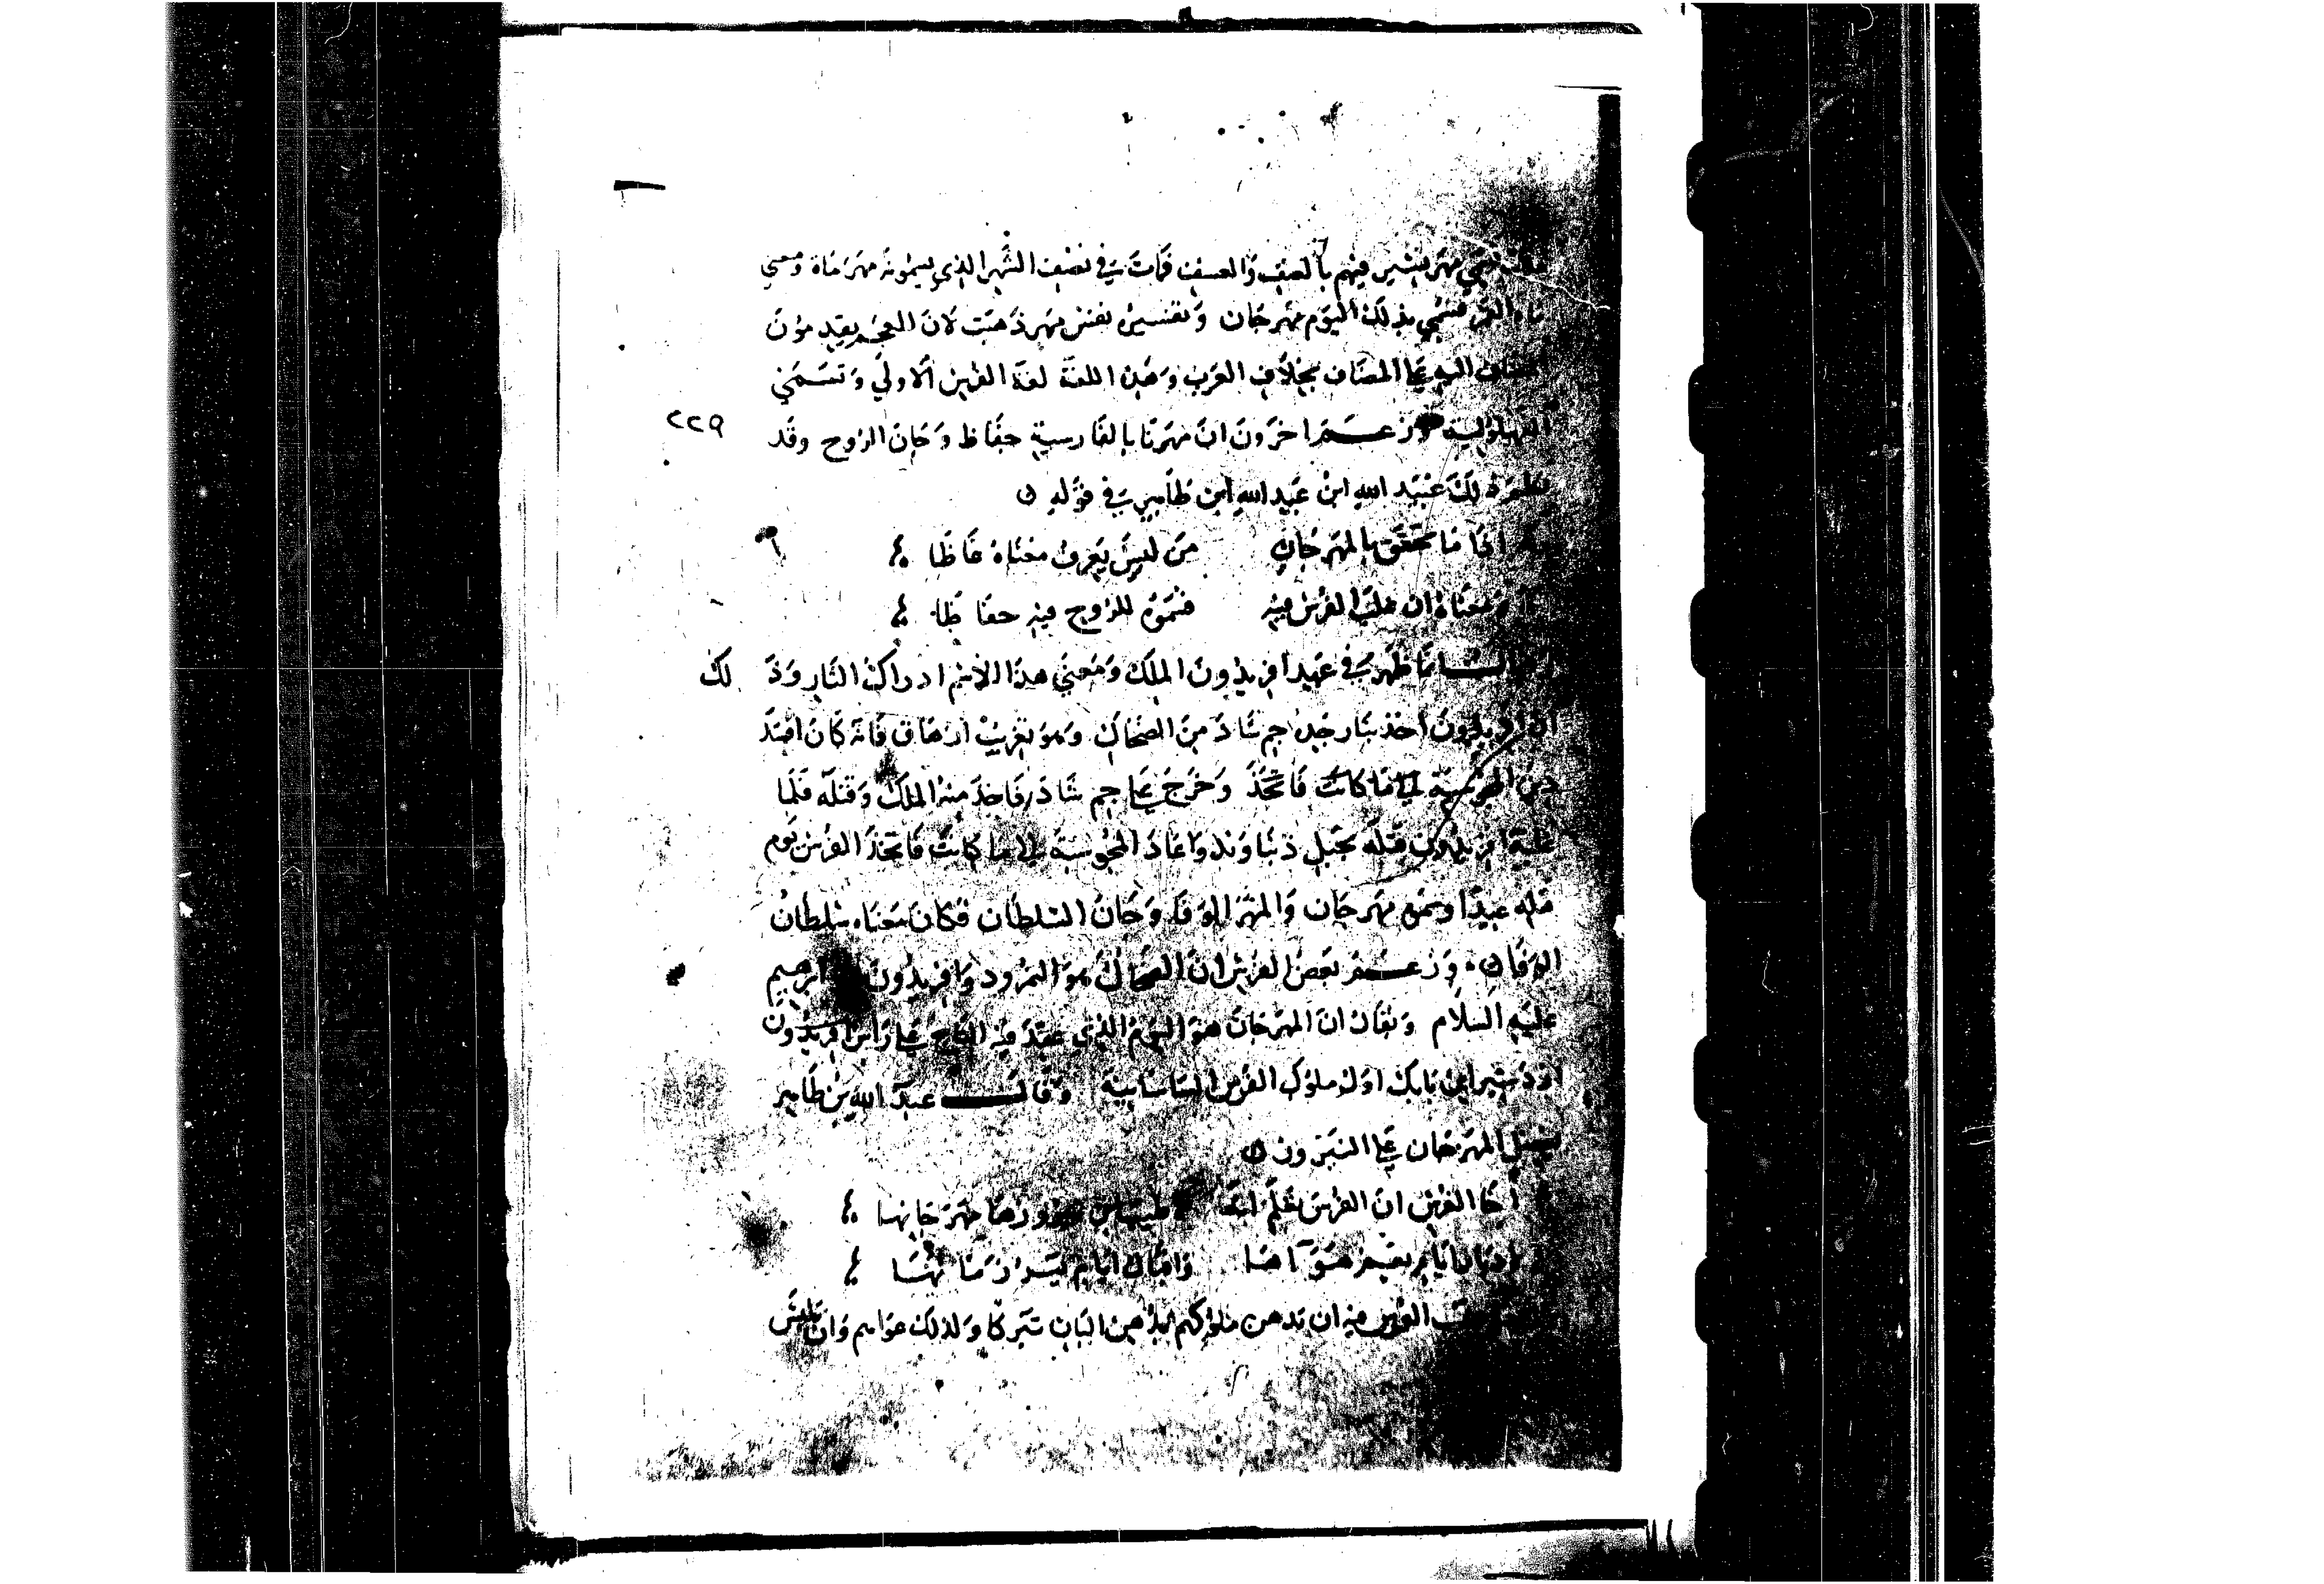 يسمي مهر يسير فيهم بالعنف والعسف فمات في نصف الشهر الذي يسمونه مهرماه ومعني
ماه القمر فسمي بذلك اليوم مهرجان وتفسيره نفس مهر ذهبت لان العجم يقدمون
المضاف اليه على المضاف بخلاف العرب وهذه اللغة لغة الفرس الاولي وتسمي
الفهلوية وزعم اخرون ان مهر بالفارسية حفاظ وجان الروح وقد
٢٢٩
نظم ذلك عبيد الله ابن عبد الله ابن طاهر في قوله
اذا ما تحقق بالمهرجان من ليس يعرف معناه غاظا
ومعناه ان غلب الفرس فيه فسموه للروح فيه حفاظا
ظهر في عهد افريدون الملك ومعني هذا الاسم ادراك الثار وذلك
ان افريدون اخذ بثار جده جم شاد من الضحاك وهو تعريب ازدهاق فانه كان افسد
دين المجوسية وخرج على جم شاد فاخذ منه الملك وقتله فلما
غلبه افريدون قتله بجبل دنباوند واعاد المجوسية الى ما كانت فاتخذ الفرس يوم
قتله عيدا وسموه مهرجان والمهر الوفا وجان السلطان فكان معناه سلطان
الوفا وزعم بعض الفرس ان الضحاك هو النمرود وافريدون ابرهيم
عليه السلام ويقال ان المهرجان هو اليوم الذي عقد فيه التاج على راس افريدون
اردشير ابن بابك اول ملوك الفرس الساسانية وقال عبد الله بن طاهر
يفضل المهرجان على النيروز
اخا الفرس ان الفرس تعلم انه لاطيب من نوروزها مهرجانها
لادبار ايام يغم هواها واقبال ايام يسر زمانها
الفرس فيه ان تدهن ملوكهم بدهن البان تبركا وكذلك عوامهم وان يلبس